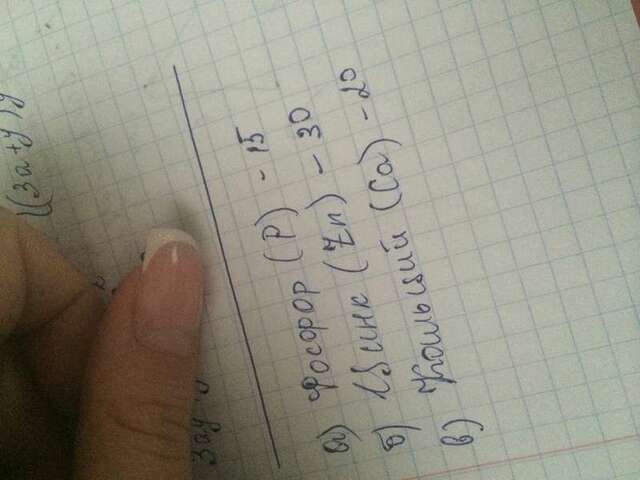 ((3a+y)y
3ay
а) Фосфор (P) - 15
б) Цинк (Zn) - 30
в) Кальций (Ca) - 20